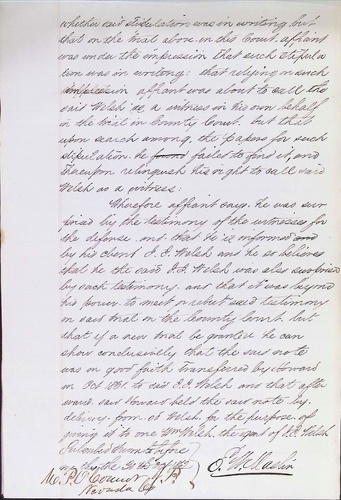 whether said stipulation was in writing, but
that on the trial above in this Court affiant
was under the impression that such stipula
tion was in writing: that relying on such
impression affiant was about to call the
said Welsh as a witness in his own behalf
in the trial in County Court. but that
upon search among the papers for such
stipulation he found failed to find it, and
thereupon relinquish his right to call said
Welsh as a witness:
Wherefore affiant says he was sur
prised by the testimony of the witnesses for
the defense. and that he is informed and
by his client J. E. Welsh and he so believes
that he the said Welsh was also surprised
by such testimony. and that it was beyond
his power to meet or rebut said testimony
on said trial in the County Court. but
that if a new trial be granted he can
show conclusively that the said note
was in good faith transferred by Howard
in Oct 1861 to said Welsh and that after
ward said Howard held the said note by
delivery from Welsh for the purpose of
giving it to one Wm Welsh, the agent of Welsh
Subscribed & sworn to before
me this the
M. P. O'Connor J. P.
Nevada Co